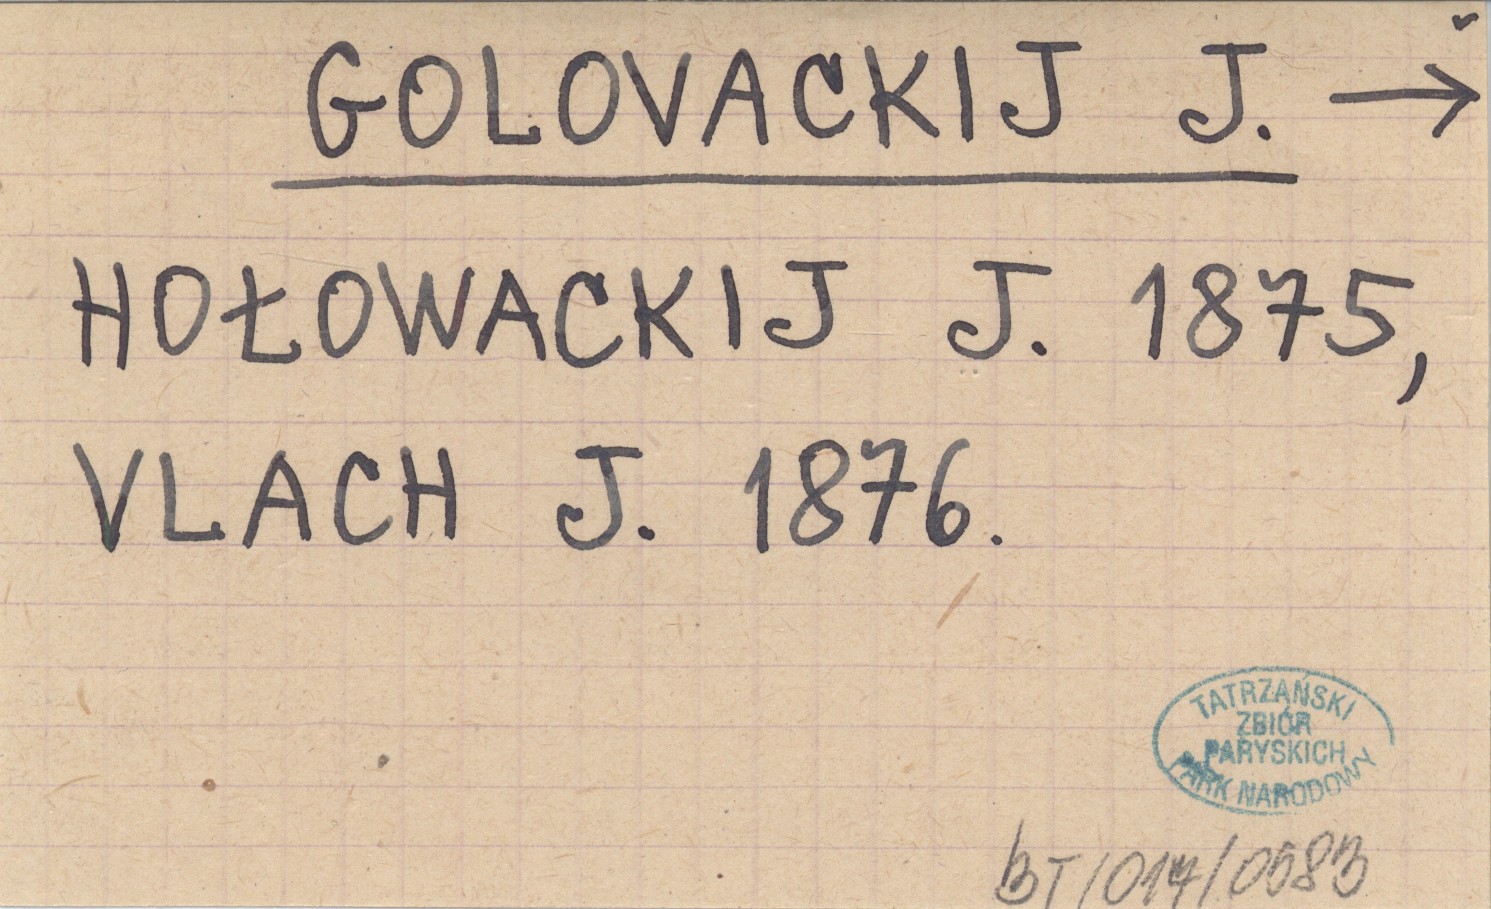 GOLOVACKIJ J. →
HOŁOWACKIJ J. 1875,
VLACH J. 1876.
TATRZAŃSKI
ZBIÓR
PARYSKICH
PARK NARODOWY
BT/017/0583